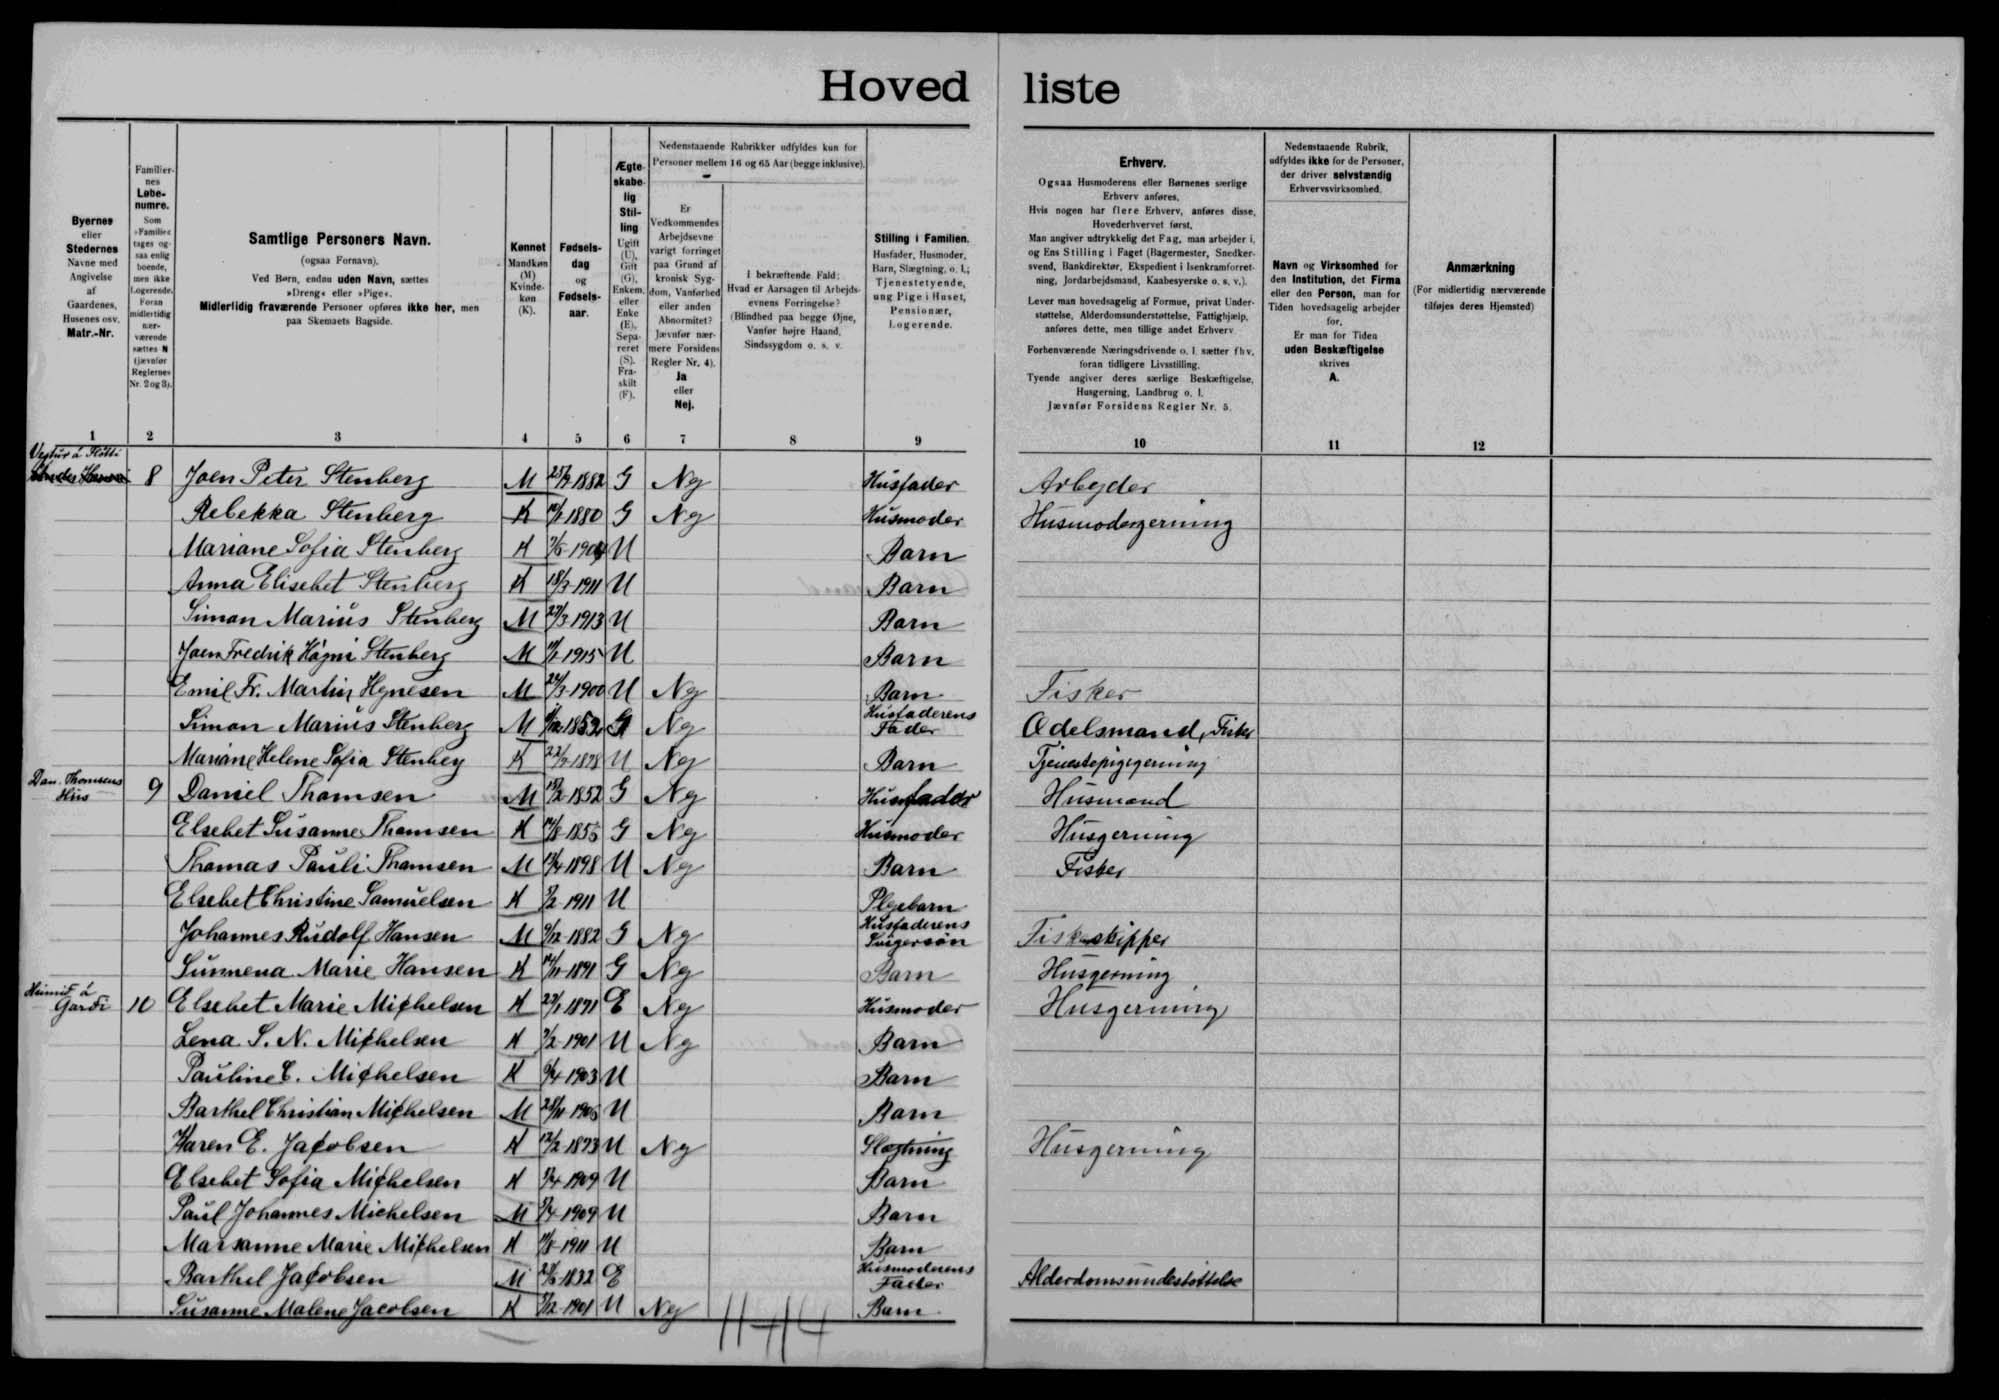 Hoved liste
Byernes eller Stedernes Navne med Angivelse af Gaardenes, Husenes osv. Matr.-Nr.
Familiernes Løbenumre. Som »Familie« tages ogsaa enlig boende, men ikke Logerende. Foran midlertidig nærværende sættes N (jævnfør Reglernes Nr. 2 og 3).
Samtlige Personers Navn. (ogsaa Fornavn). Ved Børn, endnu uden Navn, sættes »Dreng« eller »Pige«. Midlertidig fraværende Personer opføres ikke her, men paa Skemaets Bagside.
Kønnet Mandkøn (M) Kvindekøn (K).
Fødselsdag og Fødselsaar.
Ægteskabelig Stilling Ugift (U), Gift (G), Enkem. eller Enke (E), Separeret (S). Fraskilt (F).
Nedenstaaende Rubrikker udfyldes kun for Personer mellem 16 og 65 Aar (begge inklusive).
Er Vedkommendes Arbejdsevne varigt forringet paa Grund af kronisk Sygdom, Vanførhed eller anden Abnormitet? Jævnfør nærmere Forsidens Regler Nr. 4). Ja eller Nej.
I bekræftende Fald: Hvad er Aarsagen til Arbejdsevnens Forringelse? (Blindhed paa begge Øjne, Vanfør højre Haand, Sindssygdom o. s. v.
Stilling i Familien. Husfader, Husmoder, Barn, Slægtning, o. l.; Tjenestetyende, ung Pige i Huset, Pensionær, Logerende.
Erhverv.
Ogsaa Husmoderens eller Børnenes særlige Erhverv anføres.
Hvis nogen har flere Erhverv, anføres disse, Hovederhvervet først.
Man angiver udtrykkelig det Fag, man arbejder i, og Ens Stilling i Faget (Bagermester, Snedkersvend, Bankdirektør, Ekspedient i Isenkramforretning, Jordarbejdsmand, Kaabesyerske o. s. v.).
Lever man hovedsagelig af Formue, privat Understøttelse, Alderdomsunderstøttelse, Fattighjælp, anføres dette, men tillige andet Erhverv.
Forhenværende Næringsdrivende o. l. sætter fhv. foran tidligere Livsstilling.
Tyende angiver deres særlige Beskæftigelse, Husgerning, Landbrug o. l.
Jævnfør Forsidens Regler Nr. 5.
Nedenstaaende Rubrik, udfyldes ikke for de Personer, der driver selvstændig Erhvervsvirksomhed.
Navn og Virksomhed for den Institution, det Firma eller den Person, man for Tiden hovedsagelig arbejder for.
Er man for Tiden uden Beskæftigelse skrives A.
Anmærkning (For midlertidig nærværende tilføjes deres Hjemsted)
1 2 3 4 5 6 7 8 9 10 11 12
8 Joen Peter Stenberg M 1882 G Nej Husfader Arbejder
Rebekka Stenberg K 1880 G Nej Husmoder Husmodergerning
Mariane Sofia Stenberg K U Barn
Anna Elisebet Stenberg K 18/3-1911 U Barn
Simon Marius Stenberg M 27/3-1913 U Barn
Joen Fredrik Høgni Stenberg M 1915 U Barn
Emil Fr. Martin Hynesen M 1900 U Nej Barn Fisker
Simon Marius Stenberg M Nej Husfaderens Fader Odelsmand, Fisker
Mariane Helene Sofia Stenberg K U Nej Barn Tjenestepigegerning
Dan. Thomsens Hus 9 Daniel Thomsen M 1852 G Nej Husfader Husmand
Elsebet Susanne Thomsen K 1855 G Nej Husmoder Husgerning
Thomas Pauli Thomsen M 1898 U Nej Barn Fisker
Elsebet Christine Samuelsen K 1911 U Plejebarn
Johannes Rudolf Hansen M 9/12-1882 G Nej Husfaderens Svigersøn Fiskeskipper
Sunnena Marie Hansen K 1891 G Nej Barn Husgerning
Heimi á Gardi 10 Elsebet Marie Michelsen K 1871 E Nej Husmoder Husgerning
Lena S. N. Michelsen K 1901 U Nej Barn
Pauline E. Michelsen K 1903 U Barn
Barthel Christian Michelsen M U Barn
Karen E. Jacobsen K 12/2-1873 U Nej Slægtning Husgerning
Elsebet Sofia Michelsen K 1909 U Barn
Paul Johannes Michelsen M 1909 U Barn
Marsanne Marie Michelsen K 1911 U Barn
Barthel Jacobsen M 1832 E Husmoderens Fader Alderdomsundestøttelse
Susanne Malene Jacobsen K 1901 U Nej Barn